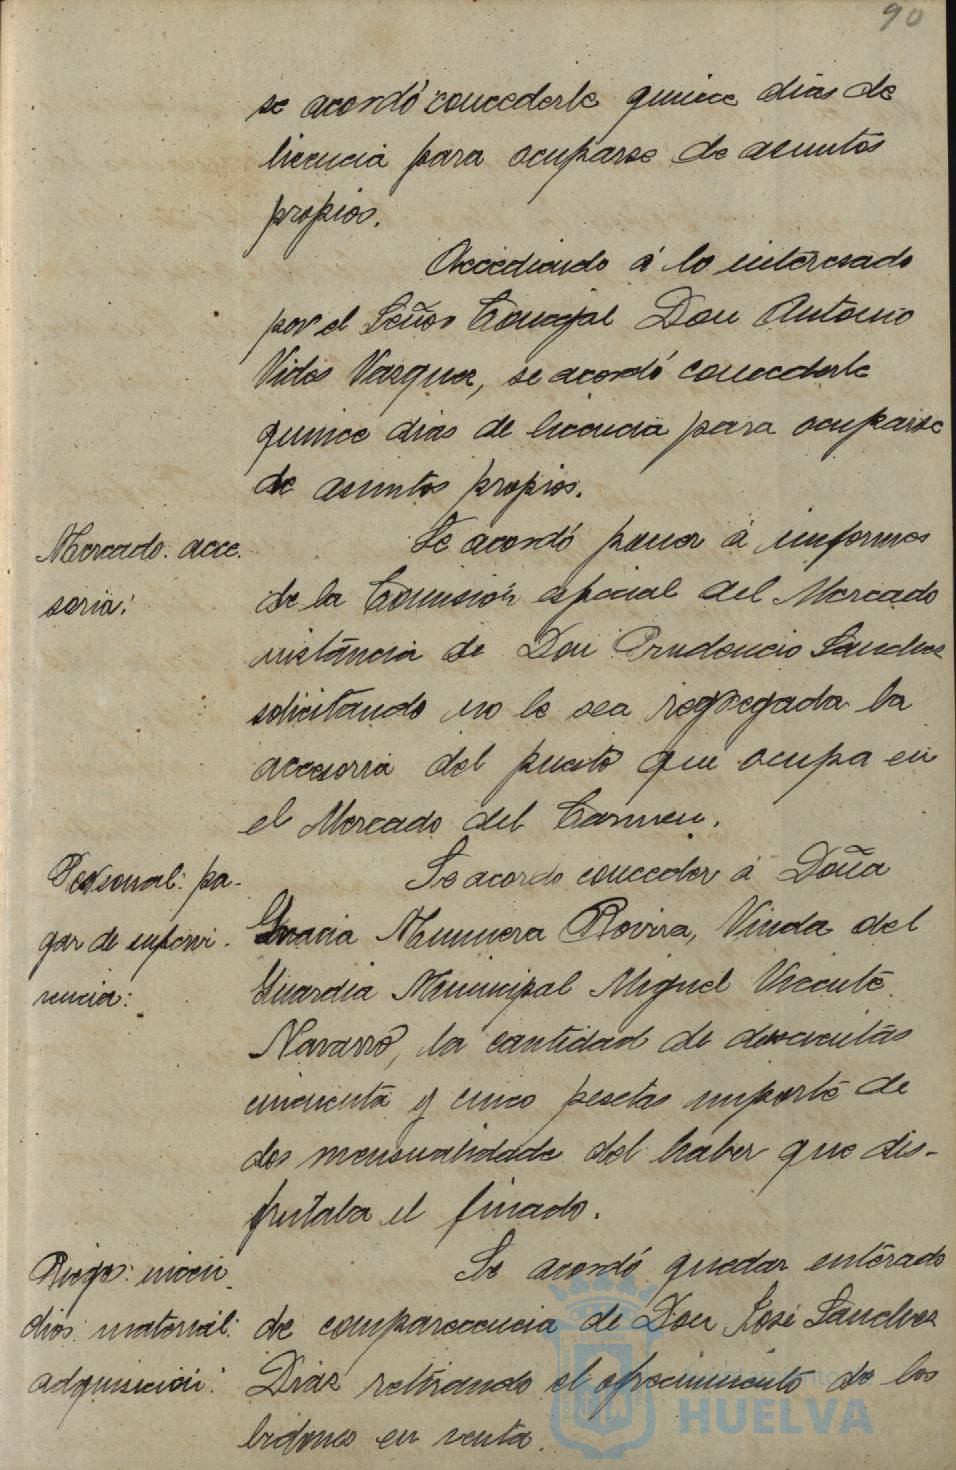 90
se acordó concederle quince dias de
licencia para ocuparse de asuntos
propios.
Accediendo á lo interesado
por el Señor Concejal Don Antonio
Vides Vazquez, se acordó concederle
quince dias de licencia para ocuparse
de asuntos propios.
Mercado: acce-
soria:
Se acordó pasar á informes
de la Comisión especial del Mercado
instáncia de Don Prudencio Sanchez
solicitando no le sea segregada la
accesoria del puesto que ocupa en
el Mercado del Carmen.
Personal: pa-
gas de supervi-
vencia:
Se acordo conceder á Doña
Gracia Munuera Rovira, Viuda del
Guardia Municipal Miguel Vicente
Navarro, la cantidad de doscientas
cincuenta y cinco pesetas importe de
dos mensualidade del haber que dis-
frutaba el finado.
Riego: incen-
dios: material:
adquisición:
Se acordó quedar enterado
de comparecencia de Don José Sanchez
Diaz retirando el ofrecimiento de los
bidones en venta.
HUELVA